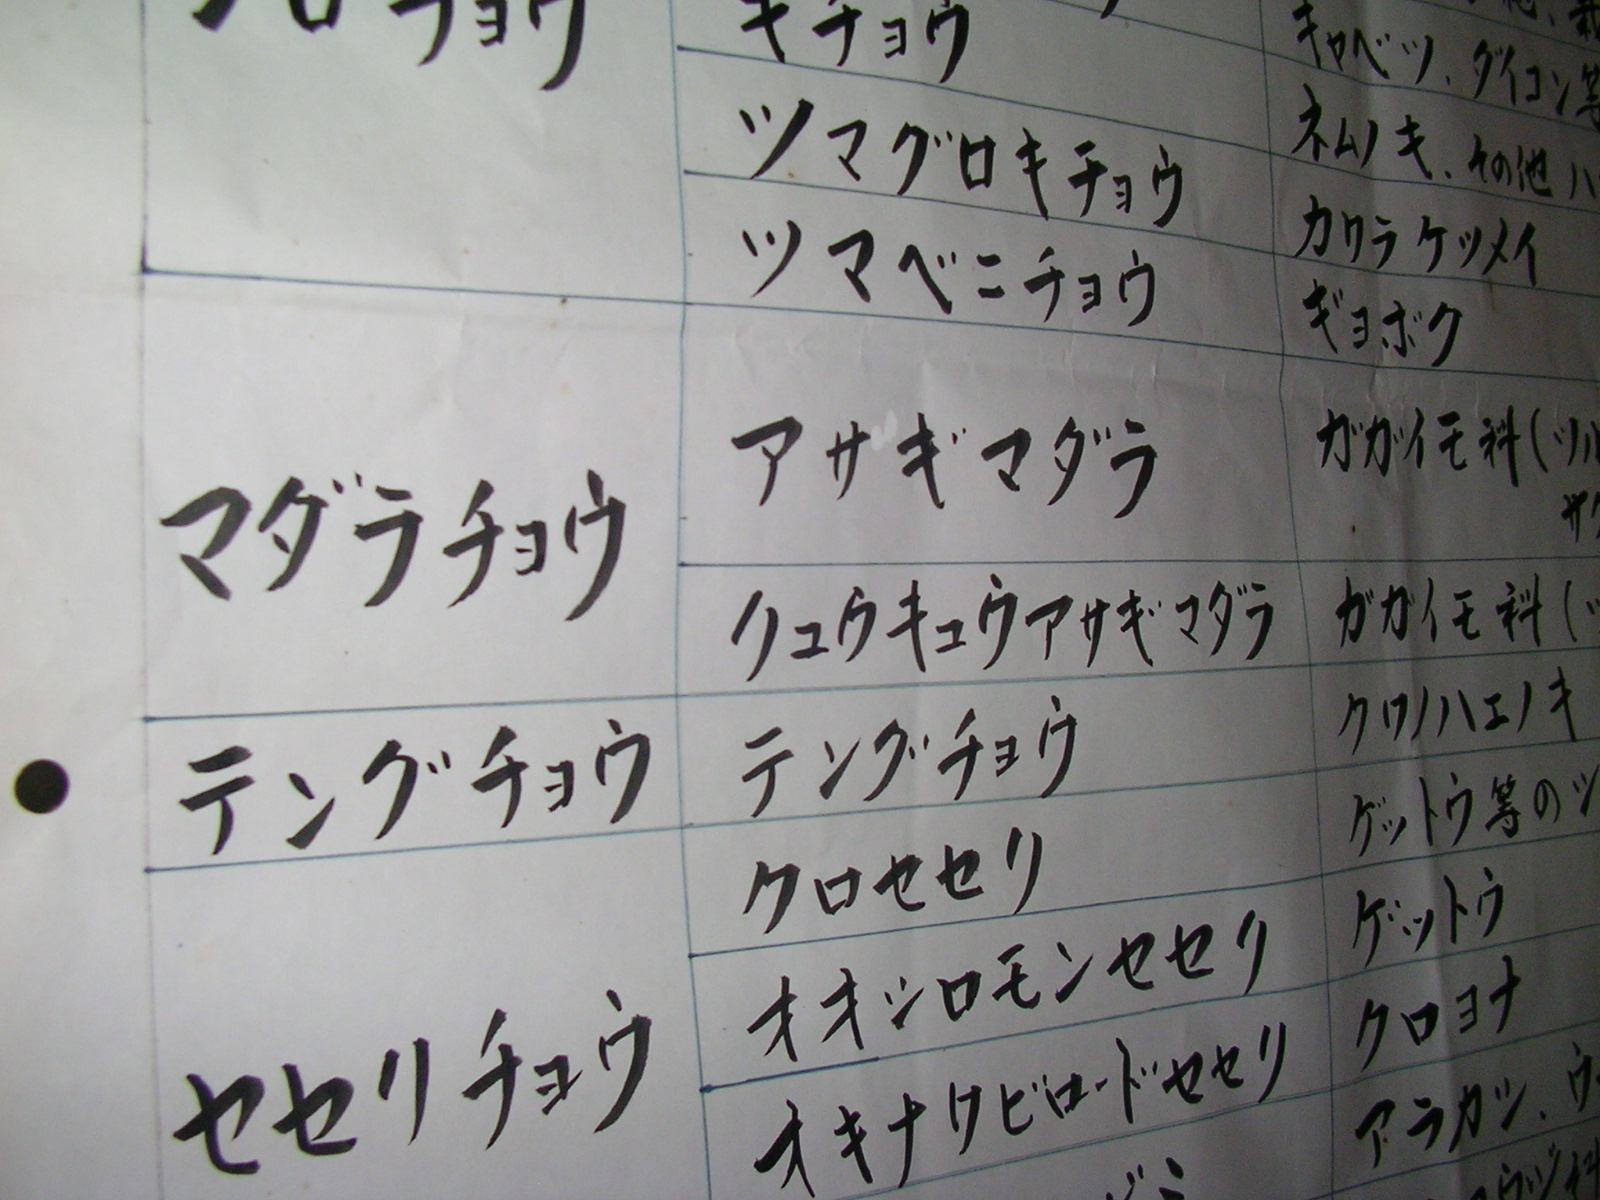 キチョウ
キャベツ、ダイコン等
ツマグロキチョウ
ネムノキ、その他
ツマベニチョウ
カワラケツメイ
ギョボク
マダラチョウ
アサギマダラ
ガガイモ科(ツル
リュウキュウアサギマダラ
ガガイモ科(
テングチョウ
テングチョウ
クワノハエノキ
セセリチョウ
クロセセリ
ゲットウ等の
オオシロモンセセリ
ゲットウ
オキナワビロードセセリ
クロヨナ
アラカシ、ウ